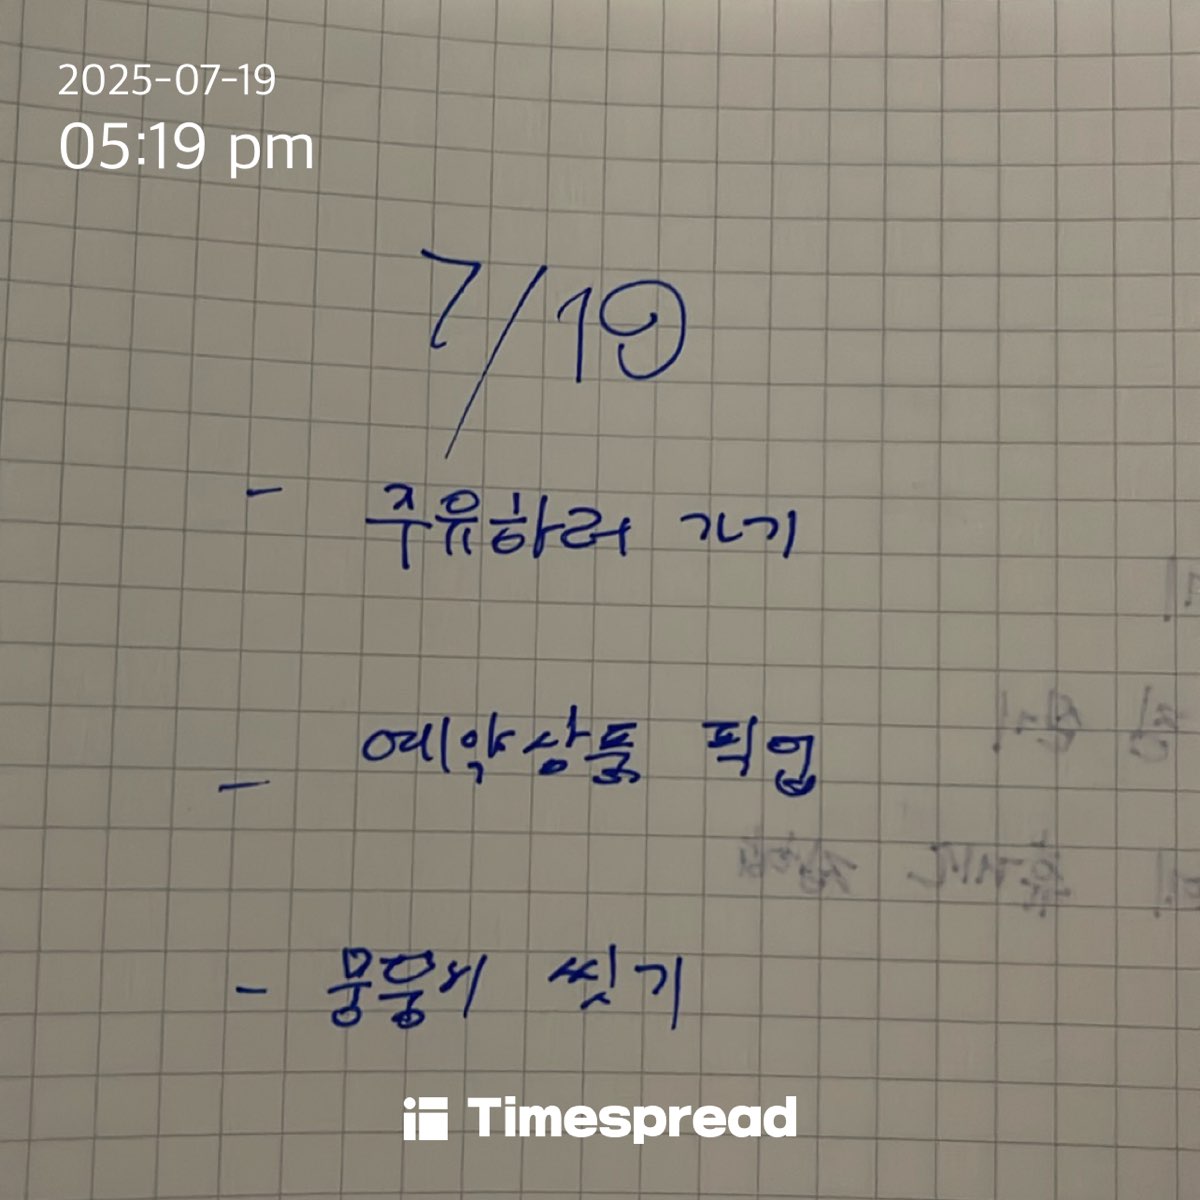 2025-07-19
05:19 pm
7/19
- 주유하러 가기
- 예약상품 픽업
- 씻기
Timespread